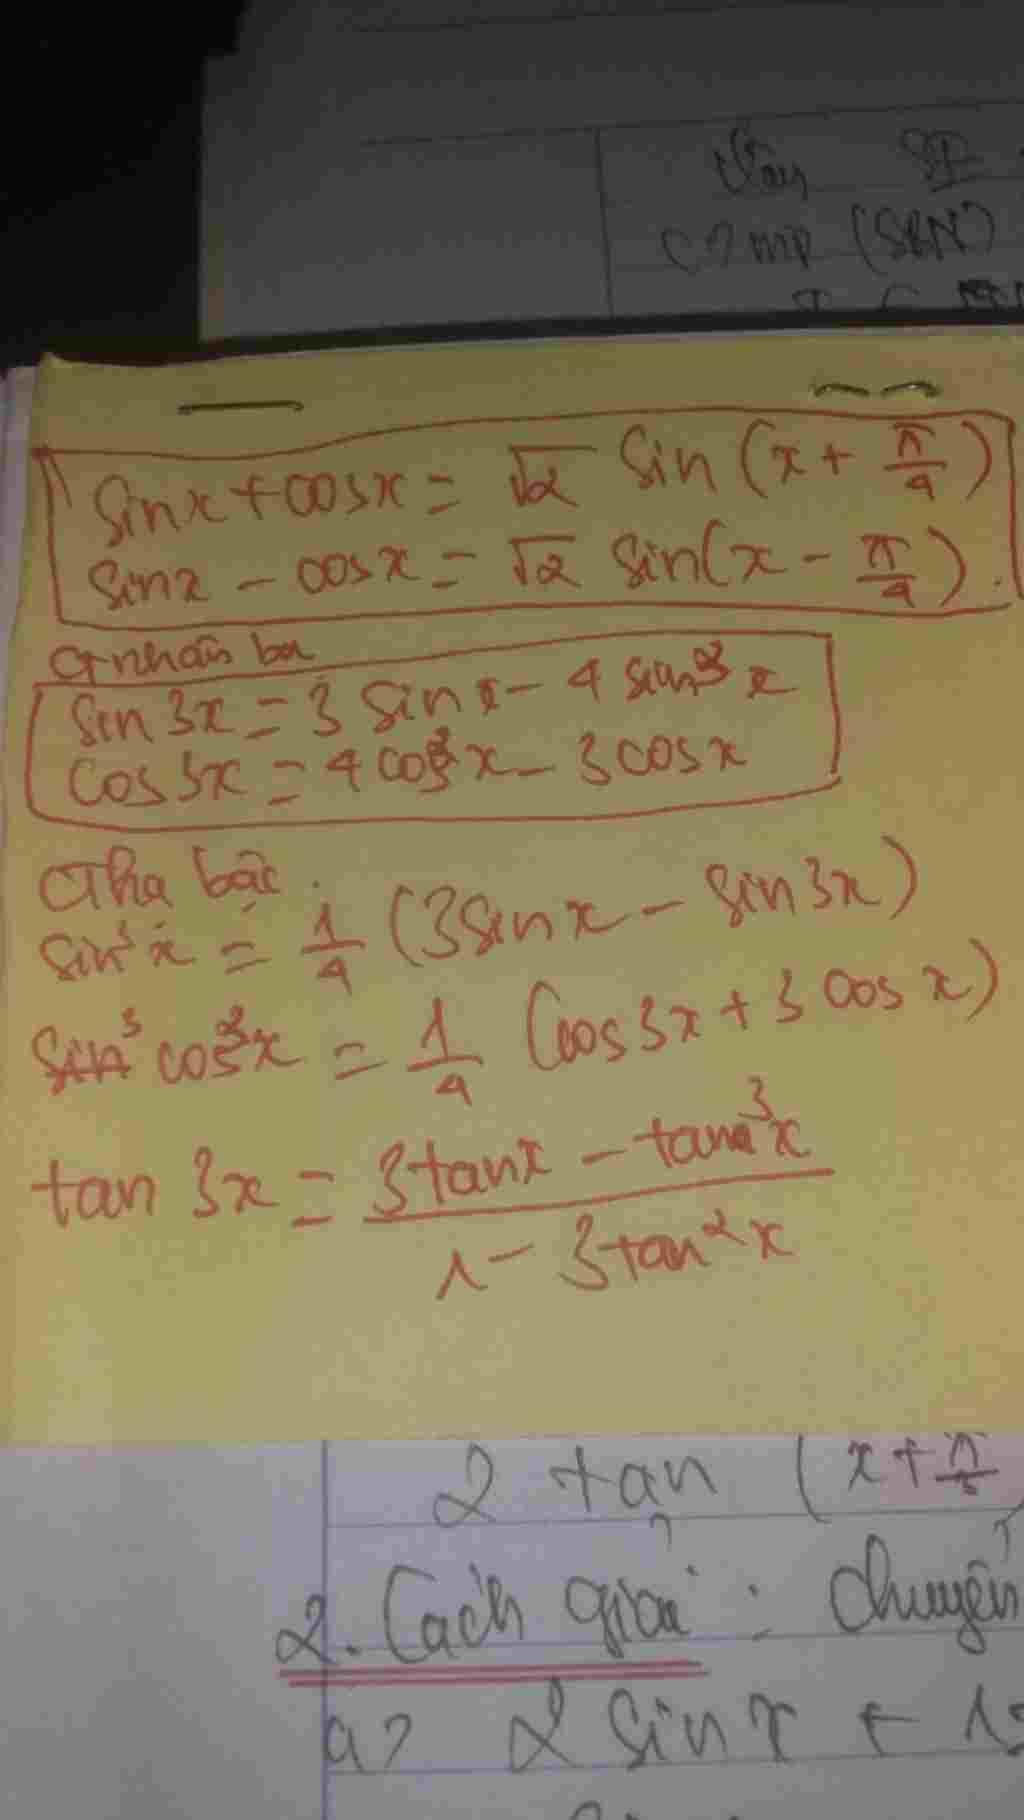 (SBN)
sinx + cosx = √2 sin (x + π/4)
sinx - cosx = √2 sin(x - π/4).
CT nhân ba
sin 3x = 3 sin x - 4 sin³ x
cos 3x = 4 cos³ x - 3 cos x
CT hạ bậc.
sin³ x = 1/4 (3 sin x - sin 3x)
cos³x = 1/4 (cos 3x + 3 cos x)
tan 3x = (3 tan x - tan³ x) / (1 - 3 tan² x)
2 tan (x + π/3
2. Cách giải : Chuyển
a> 2 sin x + 1 =